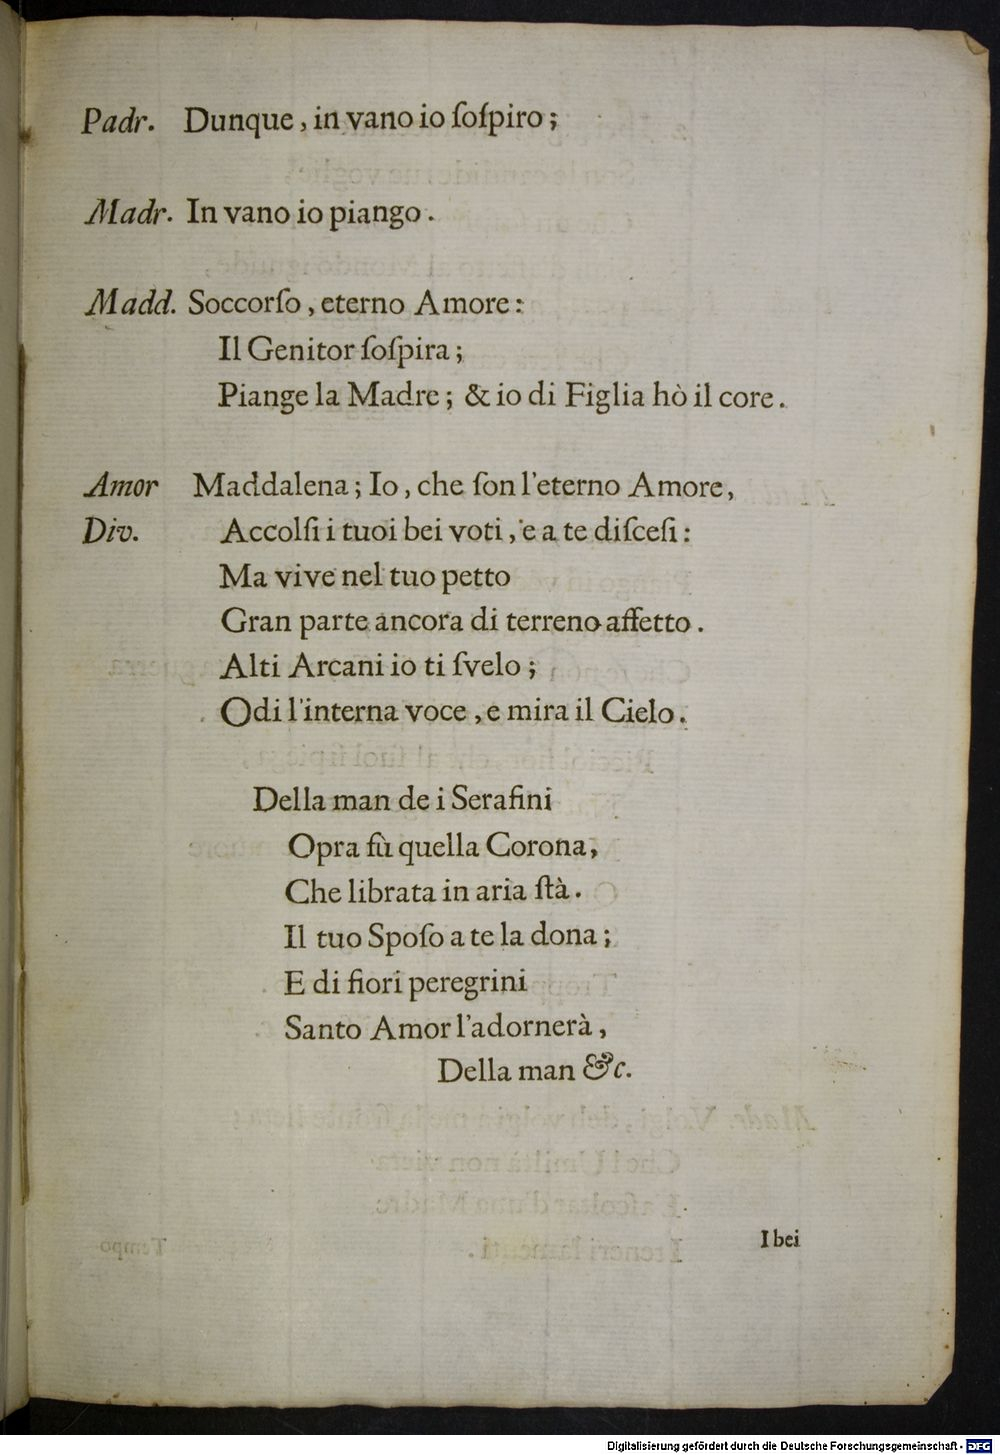 Padr. Dunque, in vano io ſoſpiro;
Madr. In vano io piango.
Madd. Soccorſo, eterno Amore:
Il Genitor ſoſpira;
Piange la Madre; & io di Figlia hò il core.
Amor Maddalena; Io, che ſon l'eterno Amore,
Div. Accolſi i tuoi bei voti, e a te diſceſi:
Ma vive nel tuo petto
Gran parte ancora di terreno affetto.
Alti Arcani io ti ſvelo;
Odi l'interna voce, e mira il Cielo.
Della man de i Serafini
Opra fù quella Corona,
Che librata in aria ſtà.
Il tuo Spoſo a te la dona;
E di fiori peregrini
Santo Amor l'adornerà,
Della man &c.
I bei
Digitalisierung gefördert durch die Deutsche Forschungsgemeinschaft - DFG